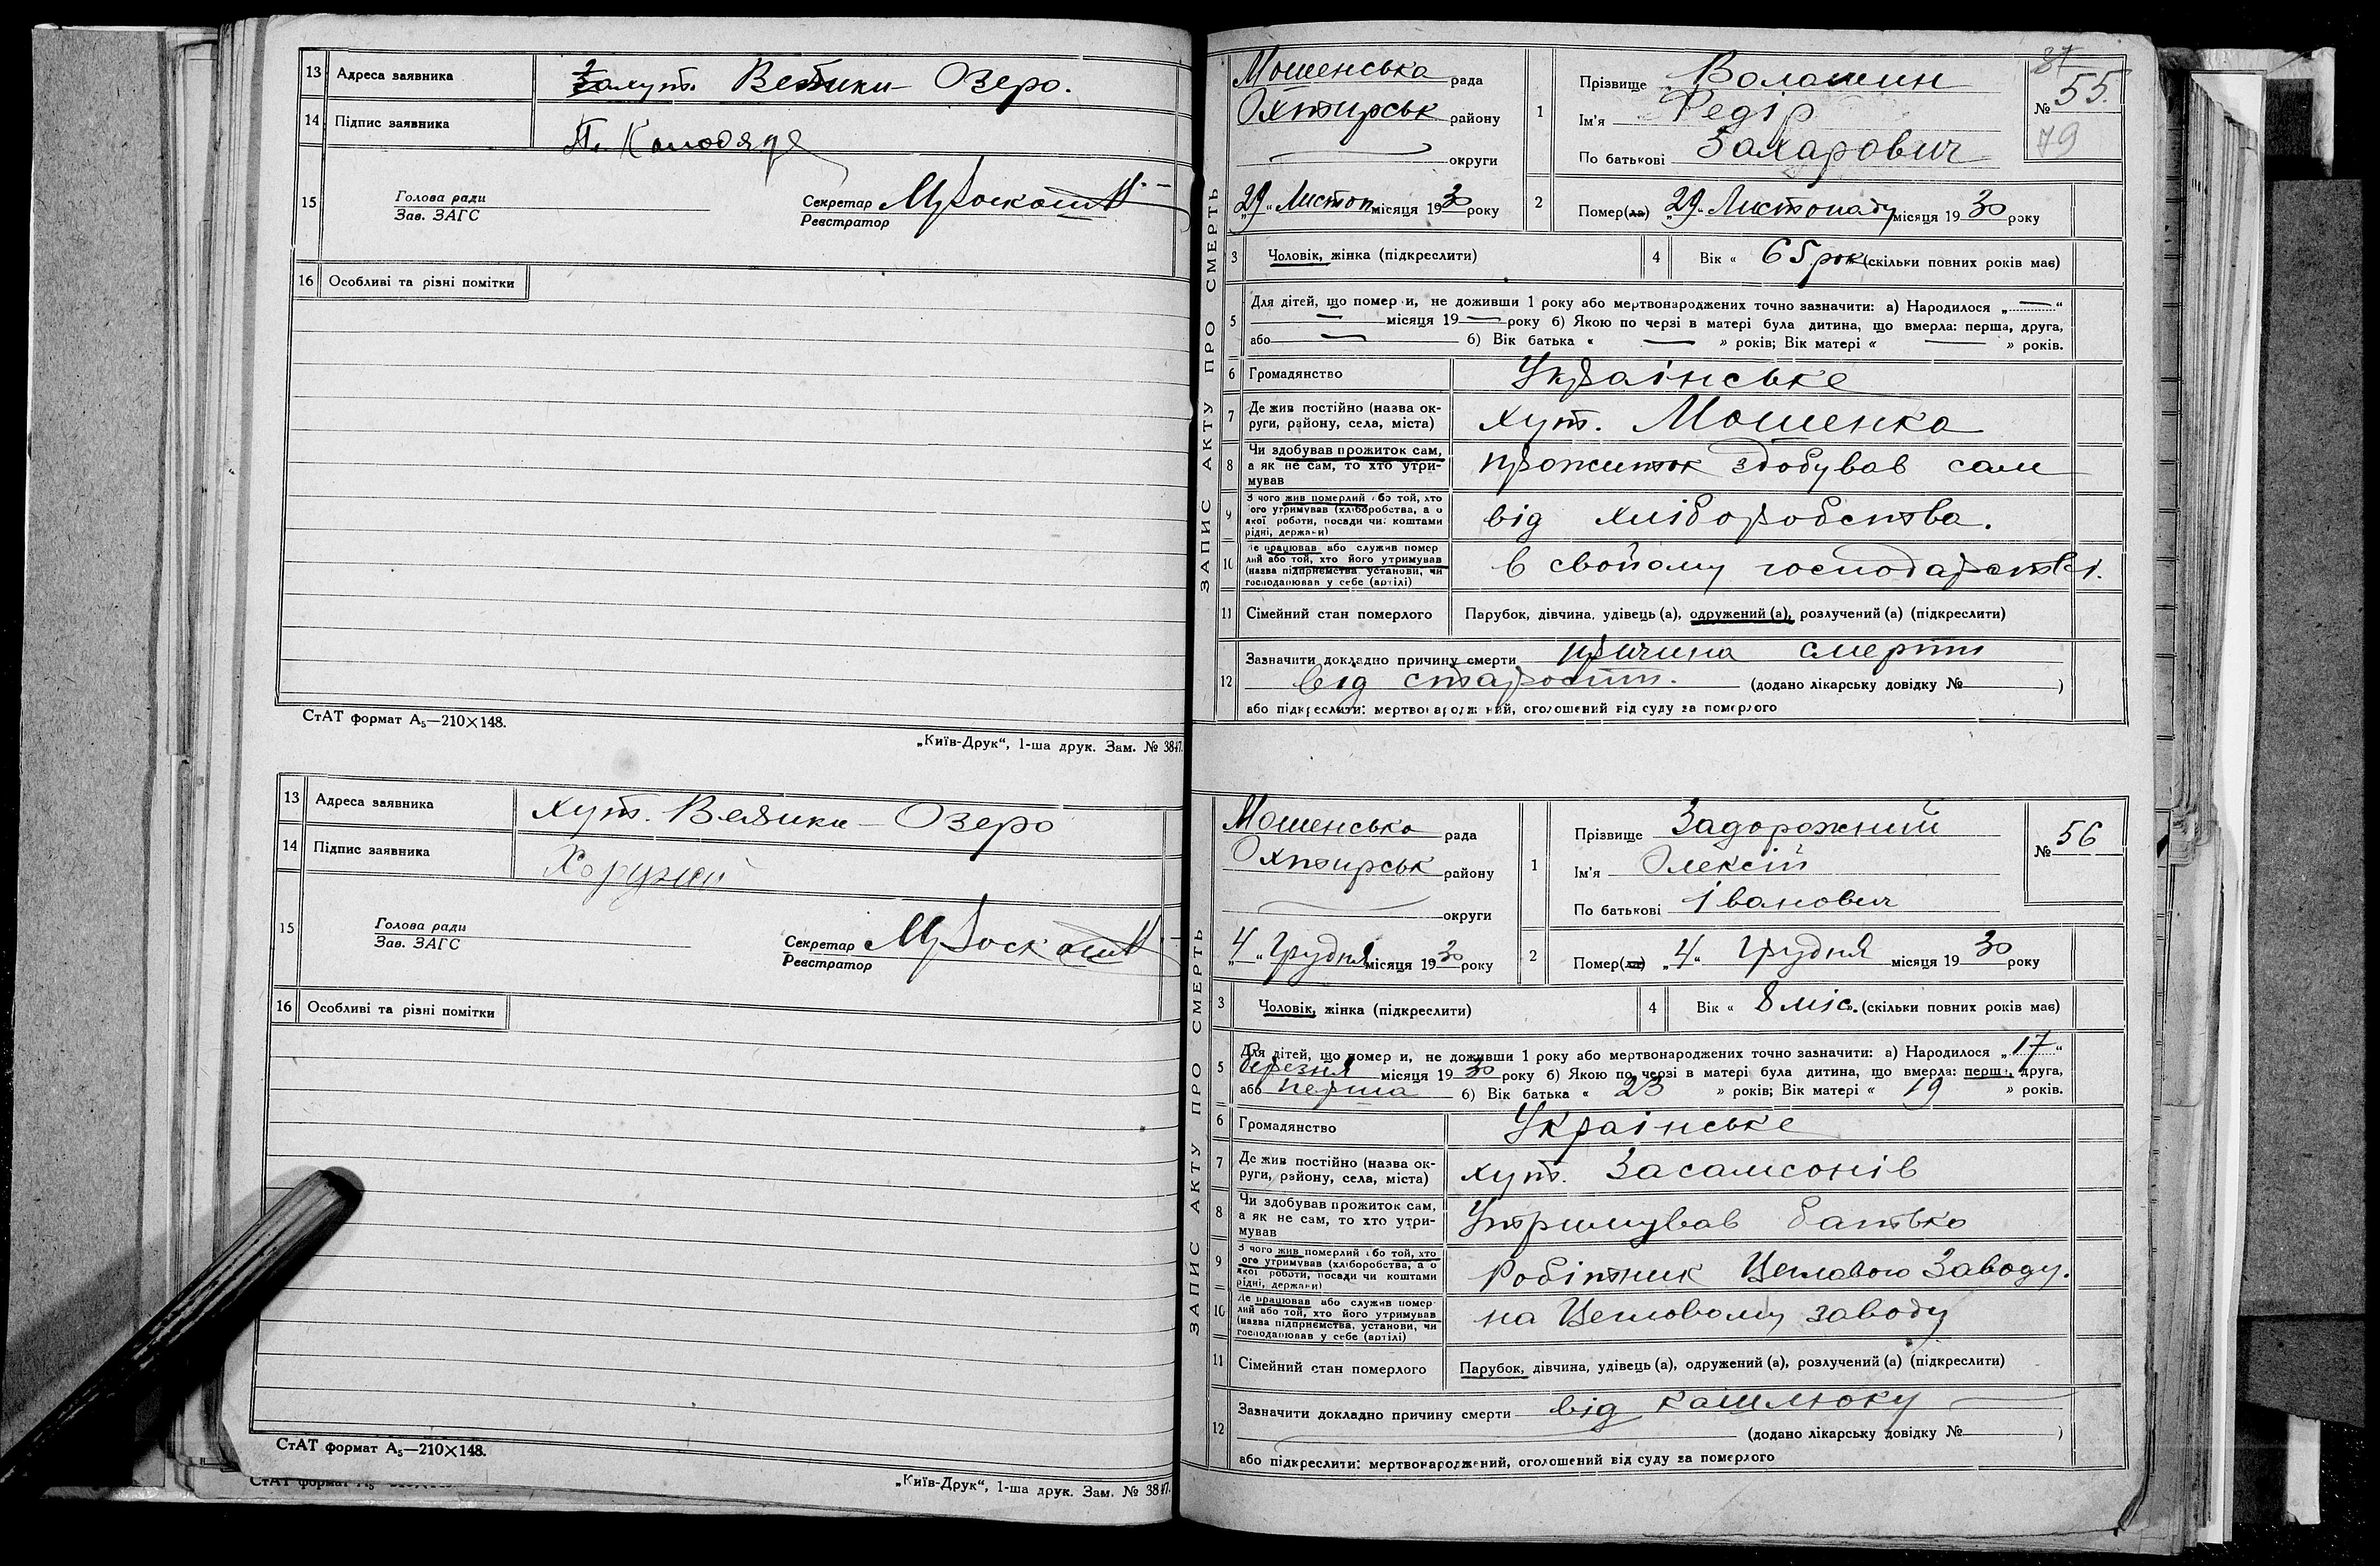 13 Адреса заявника хут. Велики Озеро.
14 Підпис заявника
15 Голова ради
Зав. ЗАГС
Секретар
Реєстратор
16 Особливі та різні помітки
СтАТ формат А₅—210×148.
„Київ-Друк“, 1-ша друк. Зам. № 3847.
13 Адреса заявника хут. Велики Озеро
14 Підпис заявника Хоружий
15 Голова ради
Зав. ЗАГС
Секретар
Реєстратор
16 Особливі та різні помітки
СтАТ формат А₅—210×148.
„Київ-Друк“, 1-ша друк. Зам. № 3847.
ЗАПИС АКТУ ПРО СМЕРТЬ
Мошенська рада
Охтирськ району
округи
„29“ Листоп місяця 1930 року
1 Прізвище Волошин
Ім'я Федір
По батькові Захарович
87
№ 55.
79
2 Помер(ла) „29“ Листопаду місяця 1930 року
3 Чоловік, жінка (підкреслити)
4 Вік « 65 рок (скільки повних років має)
5 Для дітей, що помер и, не доживши 1 року або мертвонароджених точно зазначити: а) Народилося „ — “
— місяця 19 — року б) Якою по черзі в матері була дитина, що вмерла: перша, друга,
або — б) Вік батька « — » років; Вік матері « — » років.
6 Громадянство Українське
7 Де жив постійно (назва ок-
руги, району, села, міста) хут. Мошенка
8 Чи здобував прожиток сам,
а як не сам, то хто утри-
мував прожиток здобував сам
9 З чого жив померлий або той, хто
його утримував (хліборобства, а о
якої роботи, посади чи коштами
рідні, держави) від хліборобства.
10 Де працював або служив помер
лий або той, хто його утримував
(назва підприємства, установи, чи
господарював у себе (артілі) в свойому господарстві.
11 Сімейний стан померлого Парубок, дівчина, удівець (а), одружений (а), розлучений (а) (підкреслити)
12 Зазначити докладно причину смерти причина смерти
від старости. (додано лікарську довідку № )
або підкреслити: мертвонароджений, оголошений від суду за померлого
ЗАПИС АКТУ ПРО СМЕРТЬ
Мошенська рада
Охтирськ району
округи
„4“ Грудня місяця 1930 року
1 Прізвище Задорожний
Ім'я Олексій
По батькові Іванович
№ 56
2 Помер(ла) „4“ Грудня місяця 1930 року
3 Чоловік, жінка (підкреслити)
4 Вік « 8 міс. (скільки повних років має)
5 Для дітей, що помер и, не доживши 1 року або мертвонароджених точно зазначити: а) Народилося „17“
березня місяця 1930 року б) Якою по черзі в матері була дитина, що вмерла: перша, друга,
або перша б) Вік батька « 23 » років; Вік матері « 19 » років.
6 Громадянство Українське
7 Де жив постійно (назва ок-
руги, району, села, міста) хут. Засамсонів
8 Чи здобував прожиток сам,
а як не сам, то хто утри-
мував Утримував батько
9 З чого жив померлий або той, хто
його утримував (хліборобства, а о
якої роботи, посади чи коштами
рідні, держави) Робітник Цеглового Заводу.
10 Де працював або служив помер
лий або той, хто його утримував
(назва підприємства, установи, чи
господарював у себе (артілі) на Цегловому заводу
11 Сімейний стан померлого Парубок, дівчина, удівець (а), одружений (а), розлучений (а) (підкреслити)
12 Зазначити докладно причину смерти від кашлюку
(додано лікарську довідку № )
або підкреслити: мертвонароджений, оголошений від суду за померлого